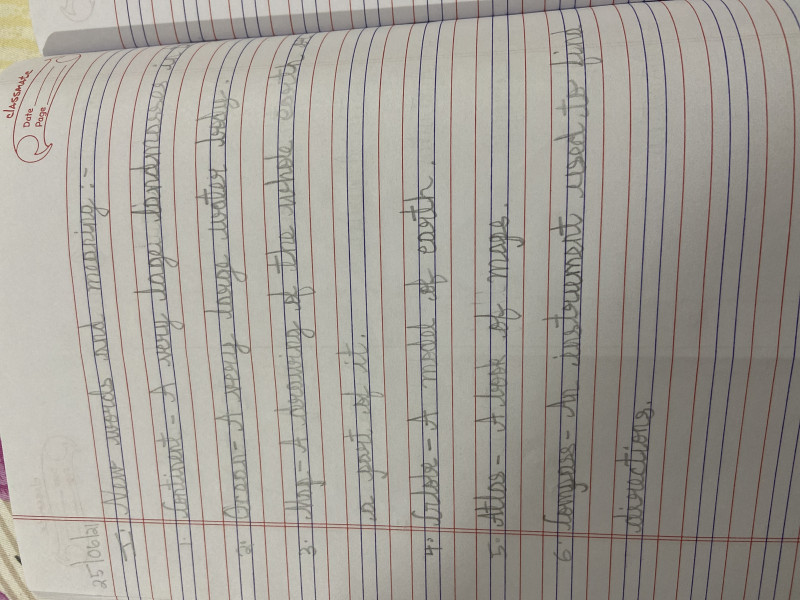 classmate
Date
Page
25/06/21
I. New words and meaning :-
1. Continent - A very large landmasses
2. Ocean - A very large water body.
3. Map - A drawing of the whole earth
a part of it.
4. Globe - A model of earth.
5. Atlas - A book of maps.
6. Compass - An instrument used to find
directions.